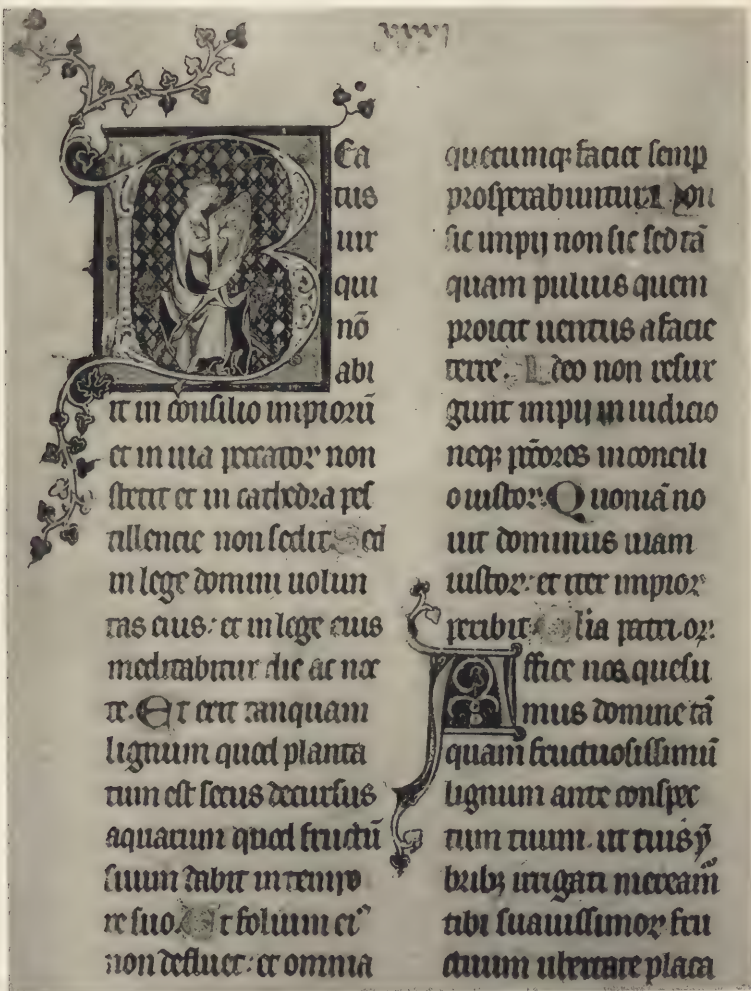 Bea
tus
uir
qui
nō
abi
it in consilio impiorū
et in uia peccatoꝝ non
stetit et in cathedra pes
tillencie non sedit. Sed
in lege domini uolun
tas eius: et in lege eius
meditabitur die ac noc
te. Et erit tanquam
lignum quod planta
tum est secus decursus
aquarum quod fructū
suum dabit in tempo
re suo. Et folium eiꝰ
non defluet: et omnia
quecumqꝫ faciet semp
prosperabuntur. Non
sic impij non sic sed tā
quam puluis quem
proicit uentus a facie
terre. Ideo non resur
gunt impij in iudicio
neqꝫ pc̄cores in concili
o iustoꝝ. Quoniā no
uit dominus uiam
iustoꝝ: et iter impioꝝ
peribit. Glia patri.oꝝ.
Effice nos quesu
mus domine tā
quam fructuosissimū
lignum ante conspec
tum tuum. ut tuis ȳ
bribꝫ irrigati meream̄
tibi suauissimoꝝ fru
ctuum ubertate placa